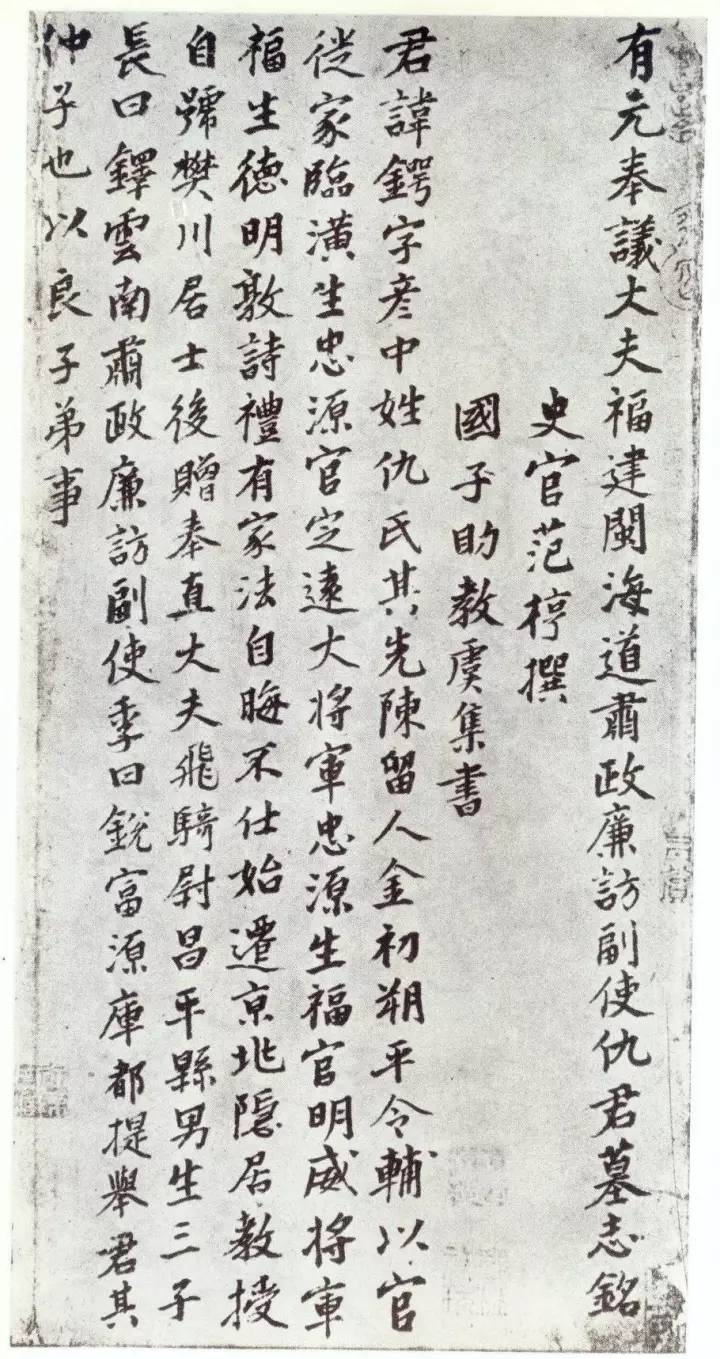 有元奉議大夫福建閩海道肅政廉訪副使仇君墓志銘
史官范梈撰
國子助教虞集書
君諱鍔字彦中姓仇氏其先陳留人金初朔平令輔以官
従家臨潢生忠源官定遠大将軍忠源生福官明威将軍
福生德明敦詩禮有家法自晦不仕始遷京兆隠居教授
自號樊川居士後贈奉直大夫飛騎尉昌平縣男生三子
長曰鐸雲南肅政廉訪副使季曰銳富源庫都提舉君其
仲子也以良子弟事